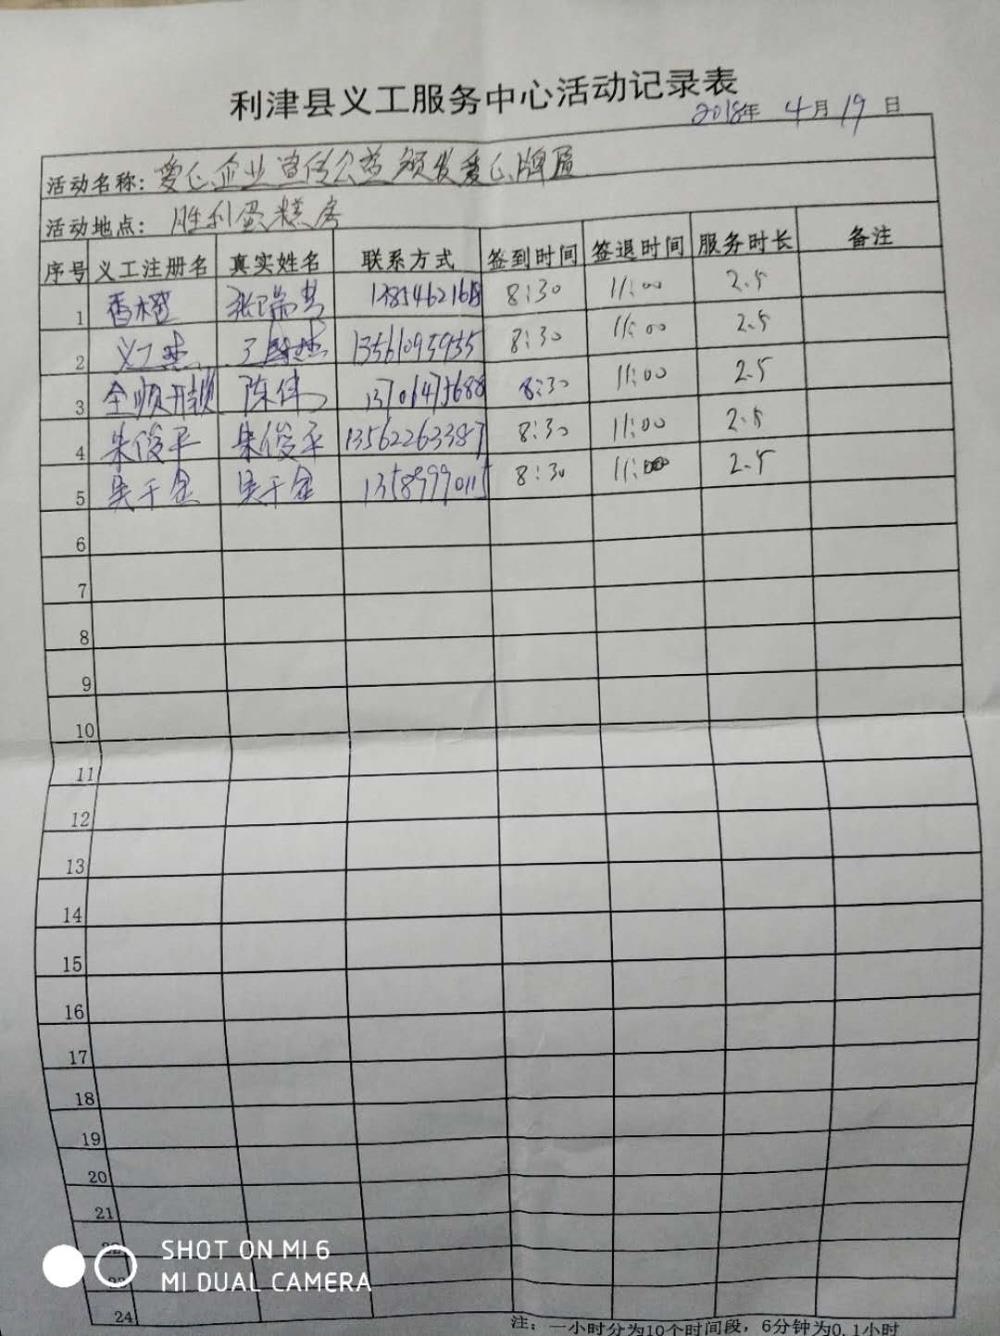 利津县义工服务中心活动记录表
2018年 4月19日
活动名称: 爱心企业宣传公益颁发爱心牌匾
活动地点: 胜利蛋糕房
序号 义工注册名 真实姓名 联系方式 签到时间 签退时间 服务时长 备注
1 香橙 8:30 11:00 2.5
2 义工杰 13561095955 8:30 11:00 2.5
3 全顺开锁 陈伟 8:30 11:00 2.5
4 朱俊平 朱俊平 13562263387 8:30 11:00 2.5
5 吴千金 吴千金 13589990115 8:30 11:00 2.5
6
7
8
9
10
11
12
13
14
15
16
17
18
19
20
21
22
23
24
SHOT ON MI 6
MI DUAL CAMERA
注: 一小时分为10个时间段，6分钟为0.1小时